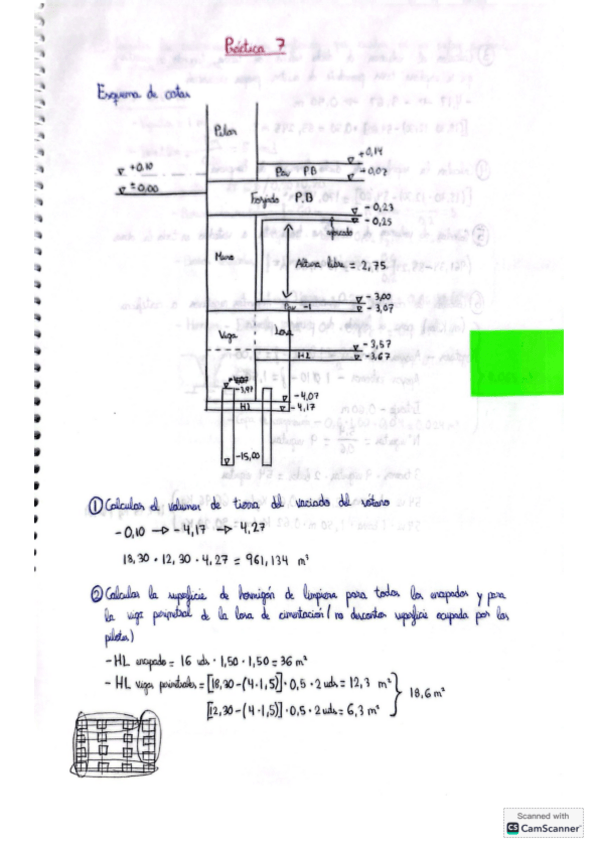 Práctica 7
Esquema de cotas
Pilar
+0,14
+0,10
Pav PB
+0,02
±0,00
Forjado P.B
-0,23
-0,25
Muro
Altura libre = 2,75
-3,00
Pav -1
-3,07
Viga
Losa
-3,57
HL
-3,67
-3,97
-4,07
HL
-4,17
-15,00
① Calcular el volumen de tierra del vaciado del sótano
-0,10 → -4,17 → 4,27
18,30 · 12,30 · 4,27 = 961,134 m³
② Calcular la superficie de hormigón de limpieza para todos los encepados y para
la viga perimetral de la losa de cimentación (no descontar superficie ocupada por los
pilotes)
- HL encepado = 16 uds · 1,50 · 1,50 = 36 m²
- HL vigas perimetrales = [18,30-(4·1,5)] · 0,5 · 2 uds = 12,3 m²
[12,30-(4·1,5)] · 0,5 · 2 uds = 6,3 m²
18,6 m²
Scanned with
CS CamScanner